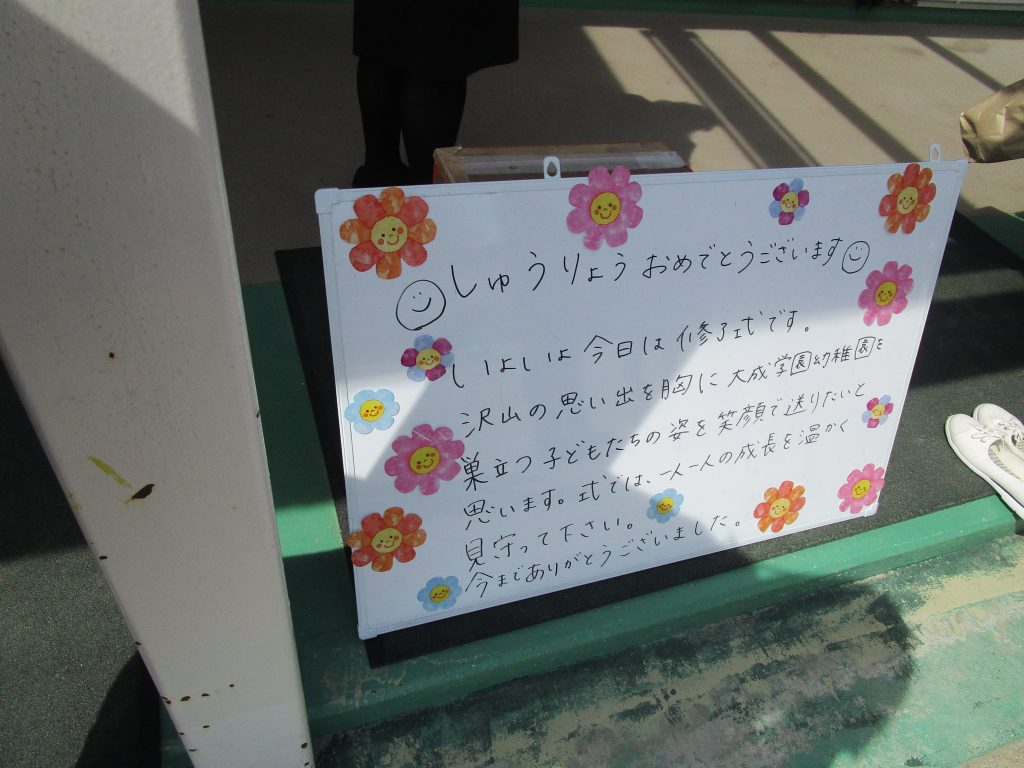 しゅうりょう おめでとうございます
いよいよ今日は修了式です。
沢山の思い出を胸に大成学園幼稚園を
巣立つ子どもたちの姿を笑顔で送りたいと
思います。式では、一人一人の成長を温かく
見守って下さい。
今までありがとうございました。